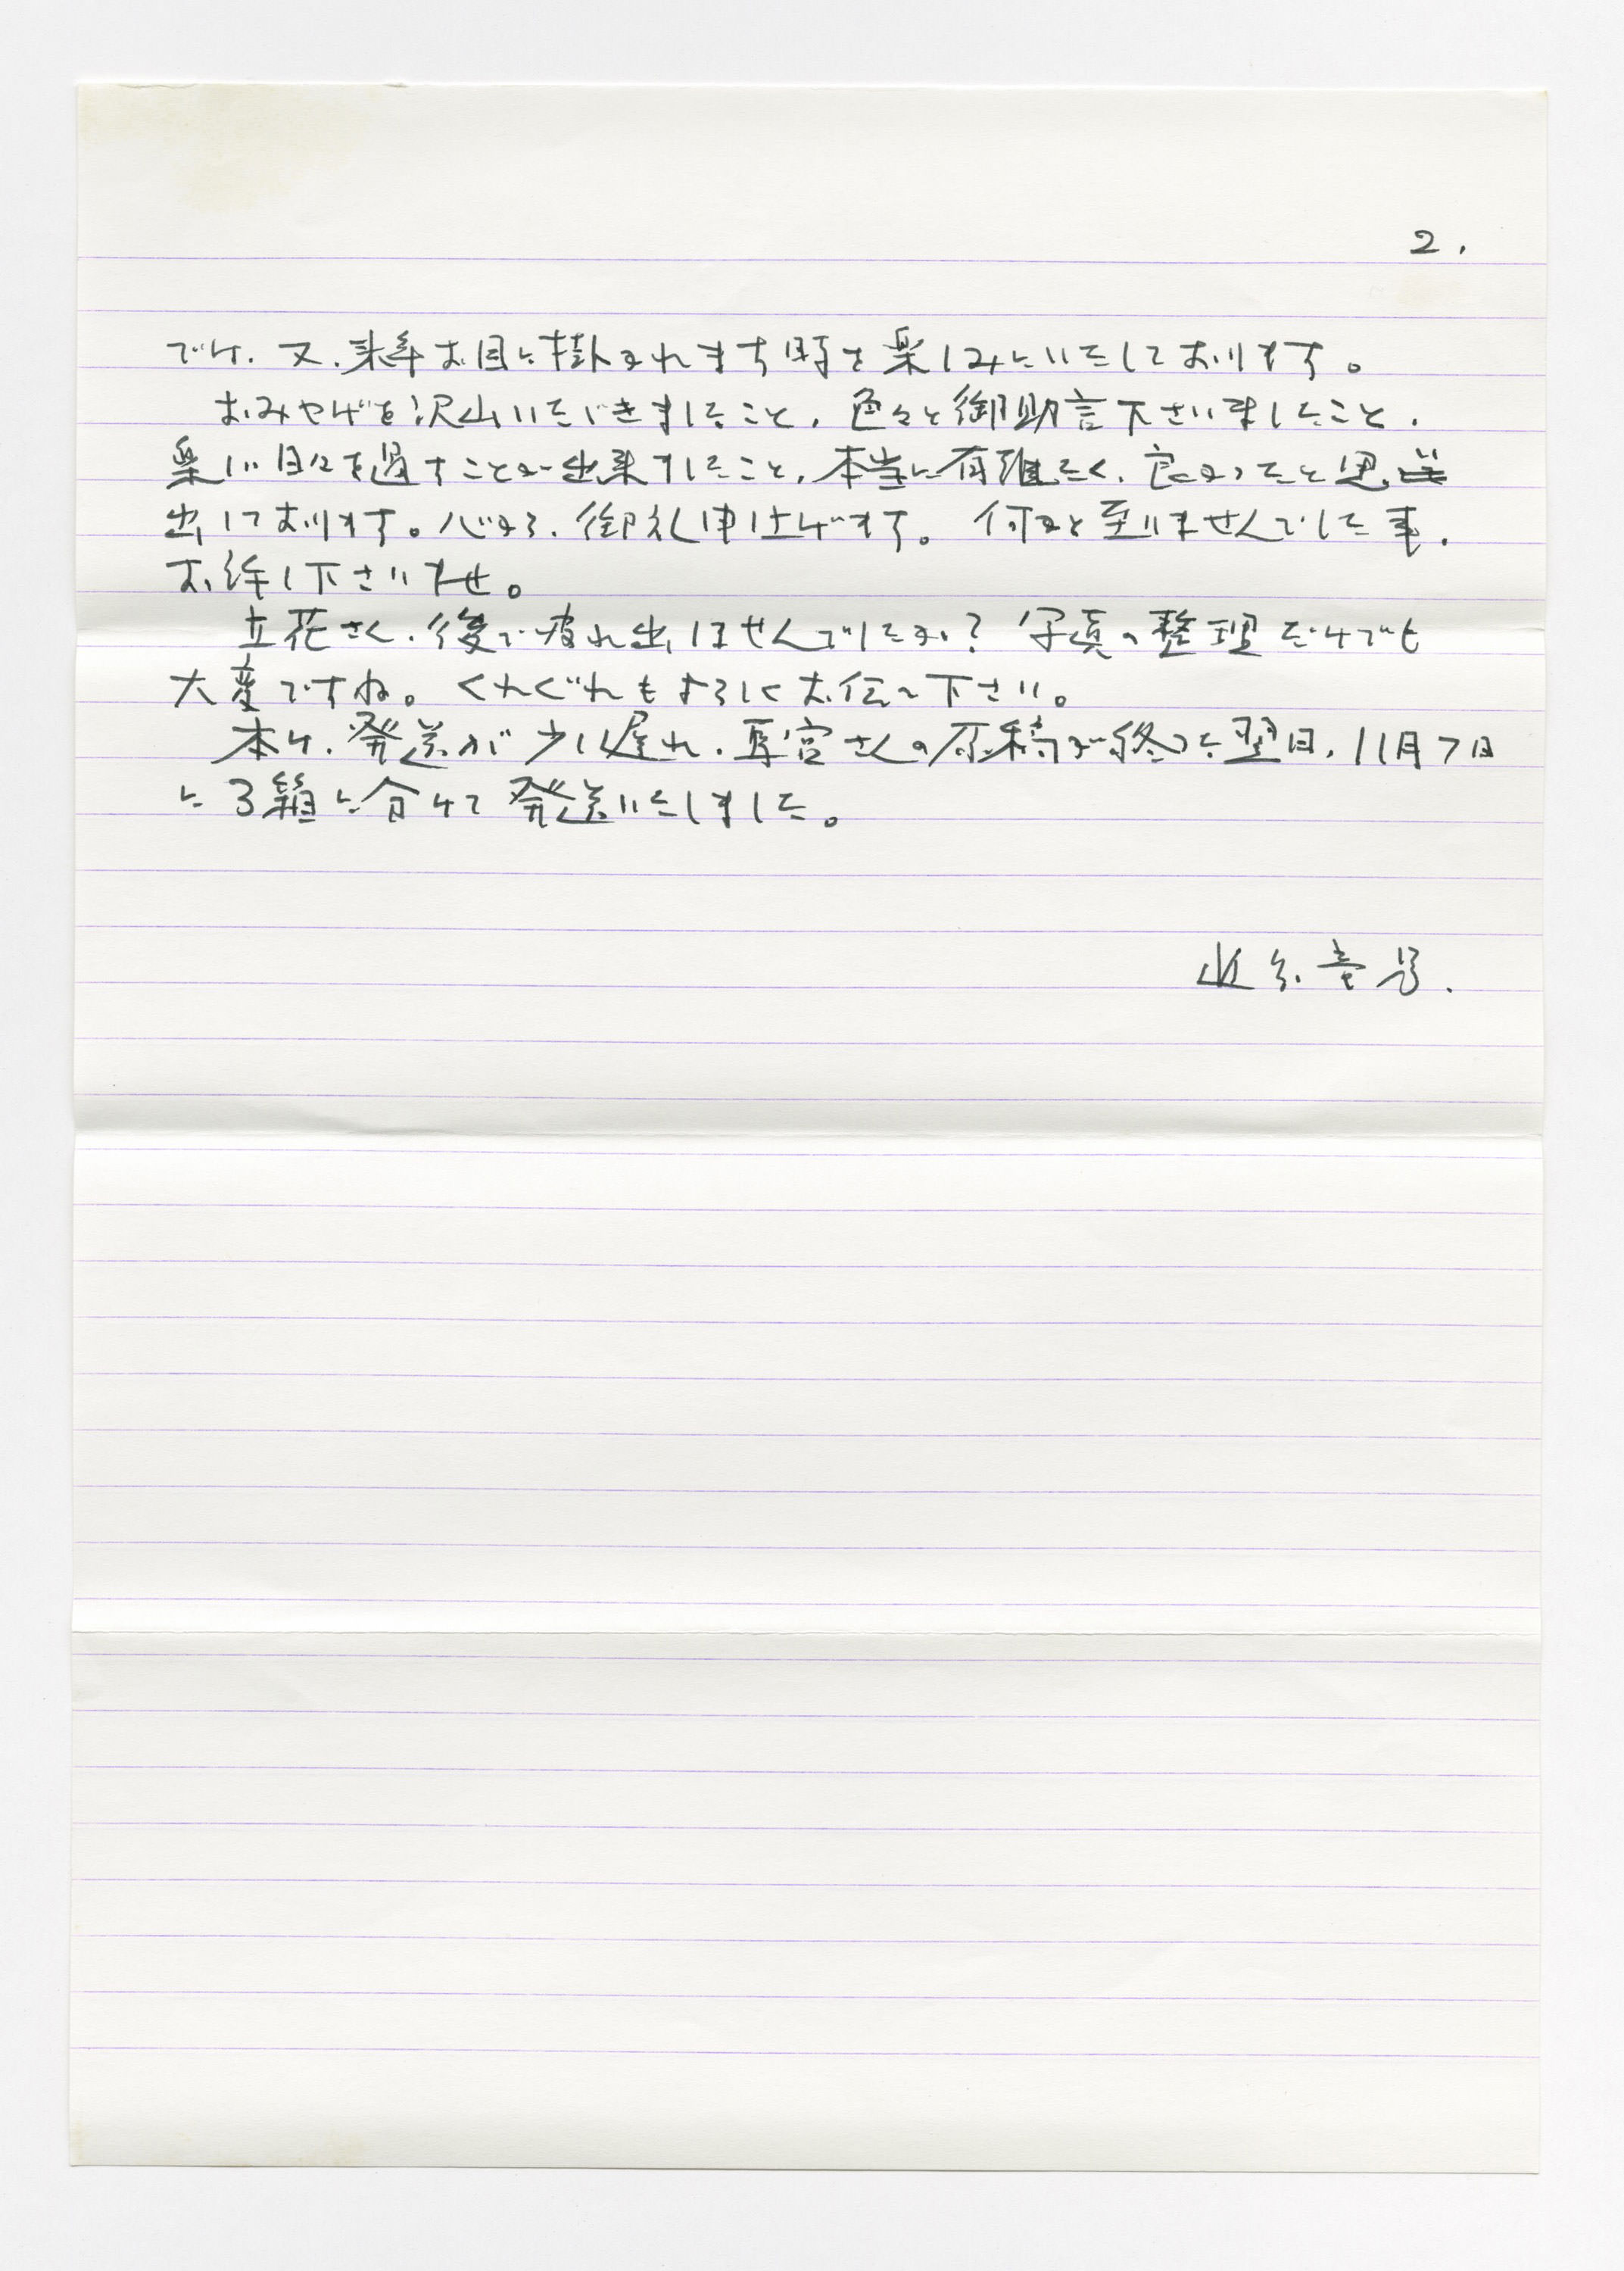 2.
では、又、来年お目に掛かれます時を楽しみにいたしております。
おみやげを沢山いただきましたこと、色々と御助言下さいましたこと、
楽しい日々を過すことが出来ましたこと、本当に有難たく、良かったと思い
出しております。心から、御礼申し上げます。何かと至りませんでした事、
お許し下さいませ。
立花さん、後で疲れ出しませんでしたか？ 写真の整理だけでも
大変ですね。くれぐれもよろしくお伝へ下さい。
本は、発送が少し遅れ、宮さんの原稿が終った翌日、11月7日
に3箱に分けて発送いたしました。